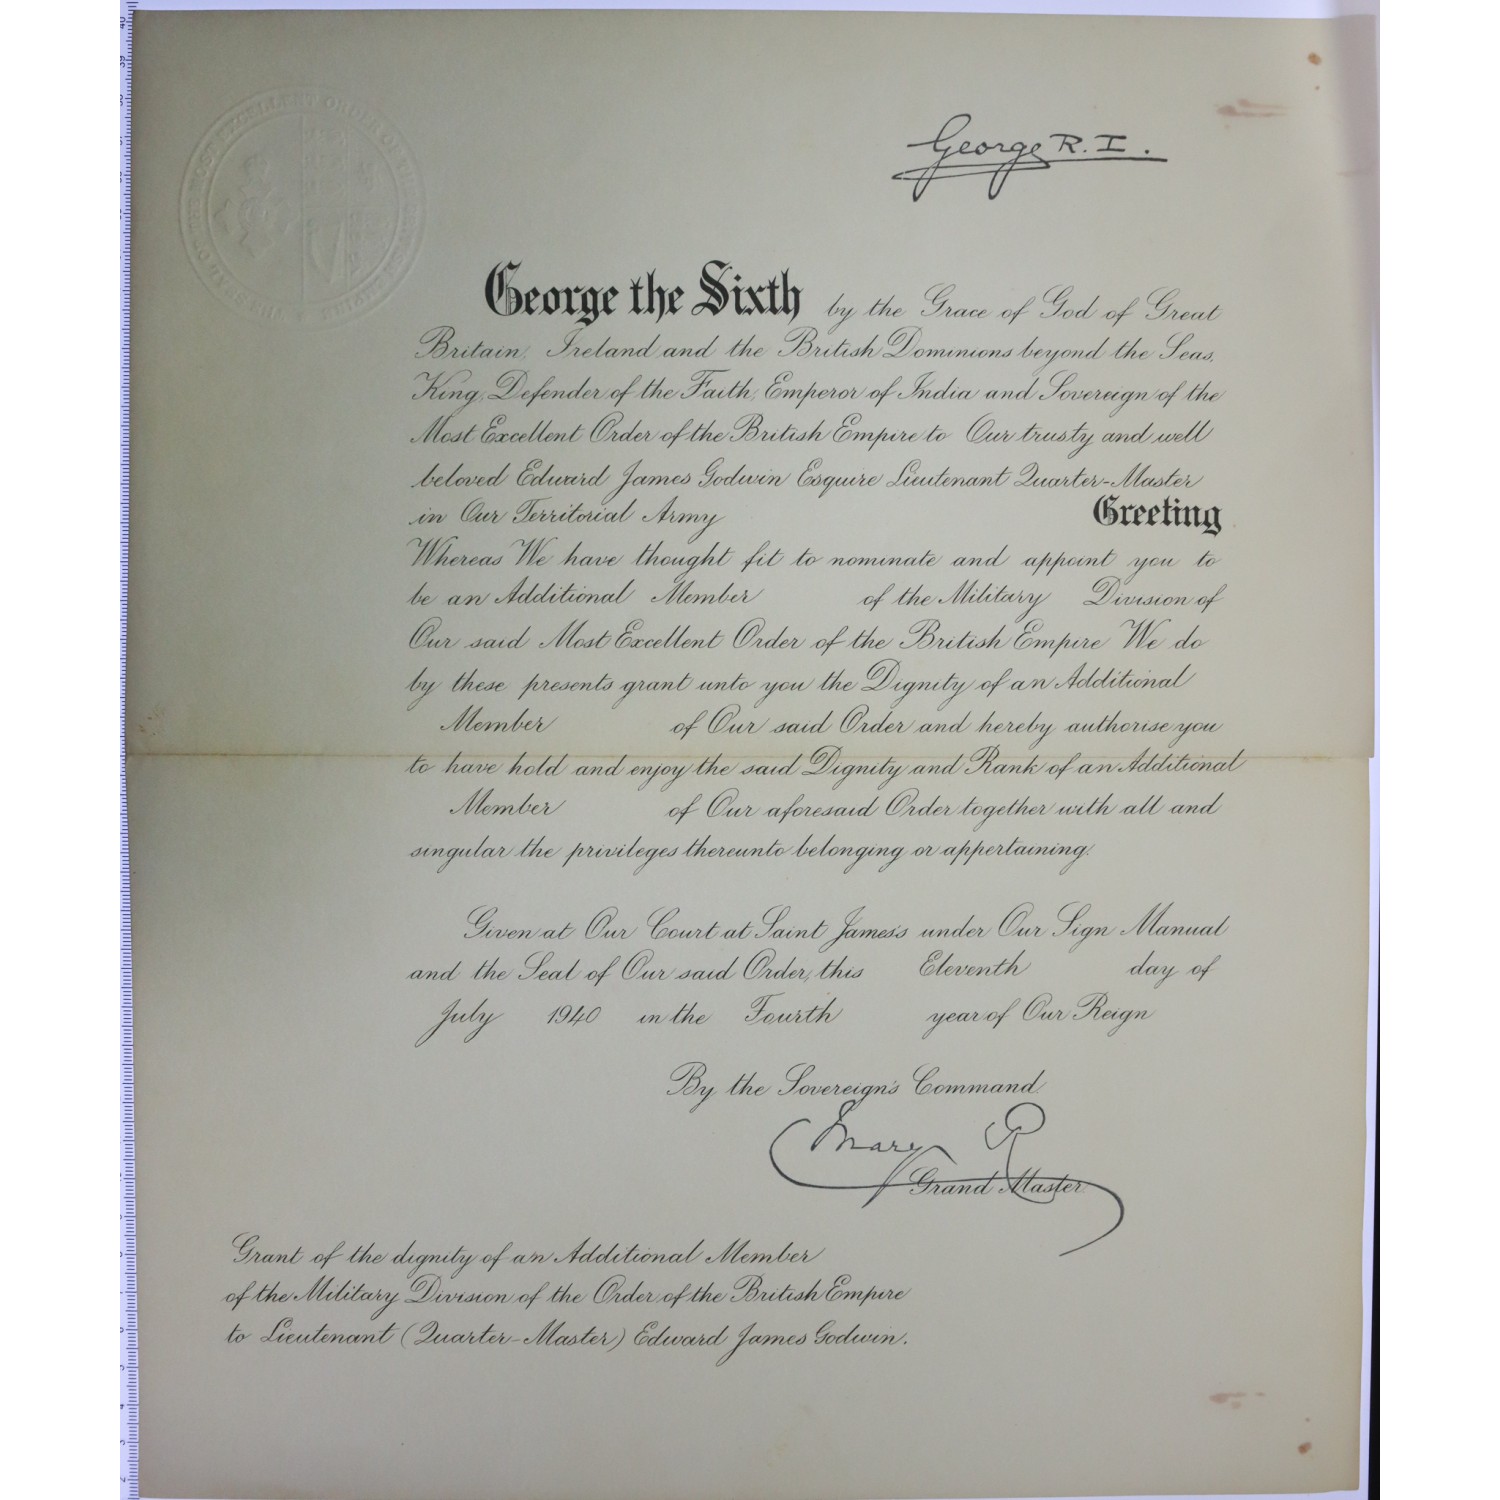 THE SEAL OF THE MOST EXCELLENT ORDER OF THE BRITISH EMPIRE
George R.I.
George the Sixth by the Grace of God of Great
Britain, Ireland and the British Dominions beyond the Seas,
King, Defender of the Faith, Emperor of India and Sovereign of the
Most Excellent Order of the British Empire to Our trusty and well
beloved Edward James Godwin Esquire Lieutenant Quarter-Master
in Our Territorial Army Greeting
Whereas We have thought fit to nominate and appoint you to
be an Additional Member of the Military Division of
Our said Most Excellent Order of the British Empire We do
by these presents grant unto you the Dignity of an Additional
Member of Our said Order and hereby authorise you
to have hold and enjoy the said Dignity and Rank of an Additional
Member of Our aforesaid Order together with all and
singular the privileges thereunto belonging or appertaining.
Given at Our Court at Saint James's under Our Sign Manual
and the Seal of Our said Order, this Eleventh day of
July 1940 in the Fourth year of Our Reign
By the Sovereign's Command.
Mary R
Grand Master.
Grant of the dignity of an Additional Member
of the Military Division of the Order of the British Empire
to Lieutenant (Quarter-Master) Edward James Godwin.